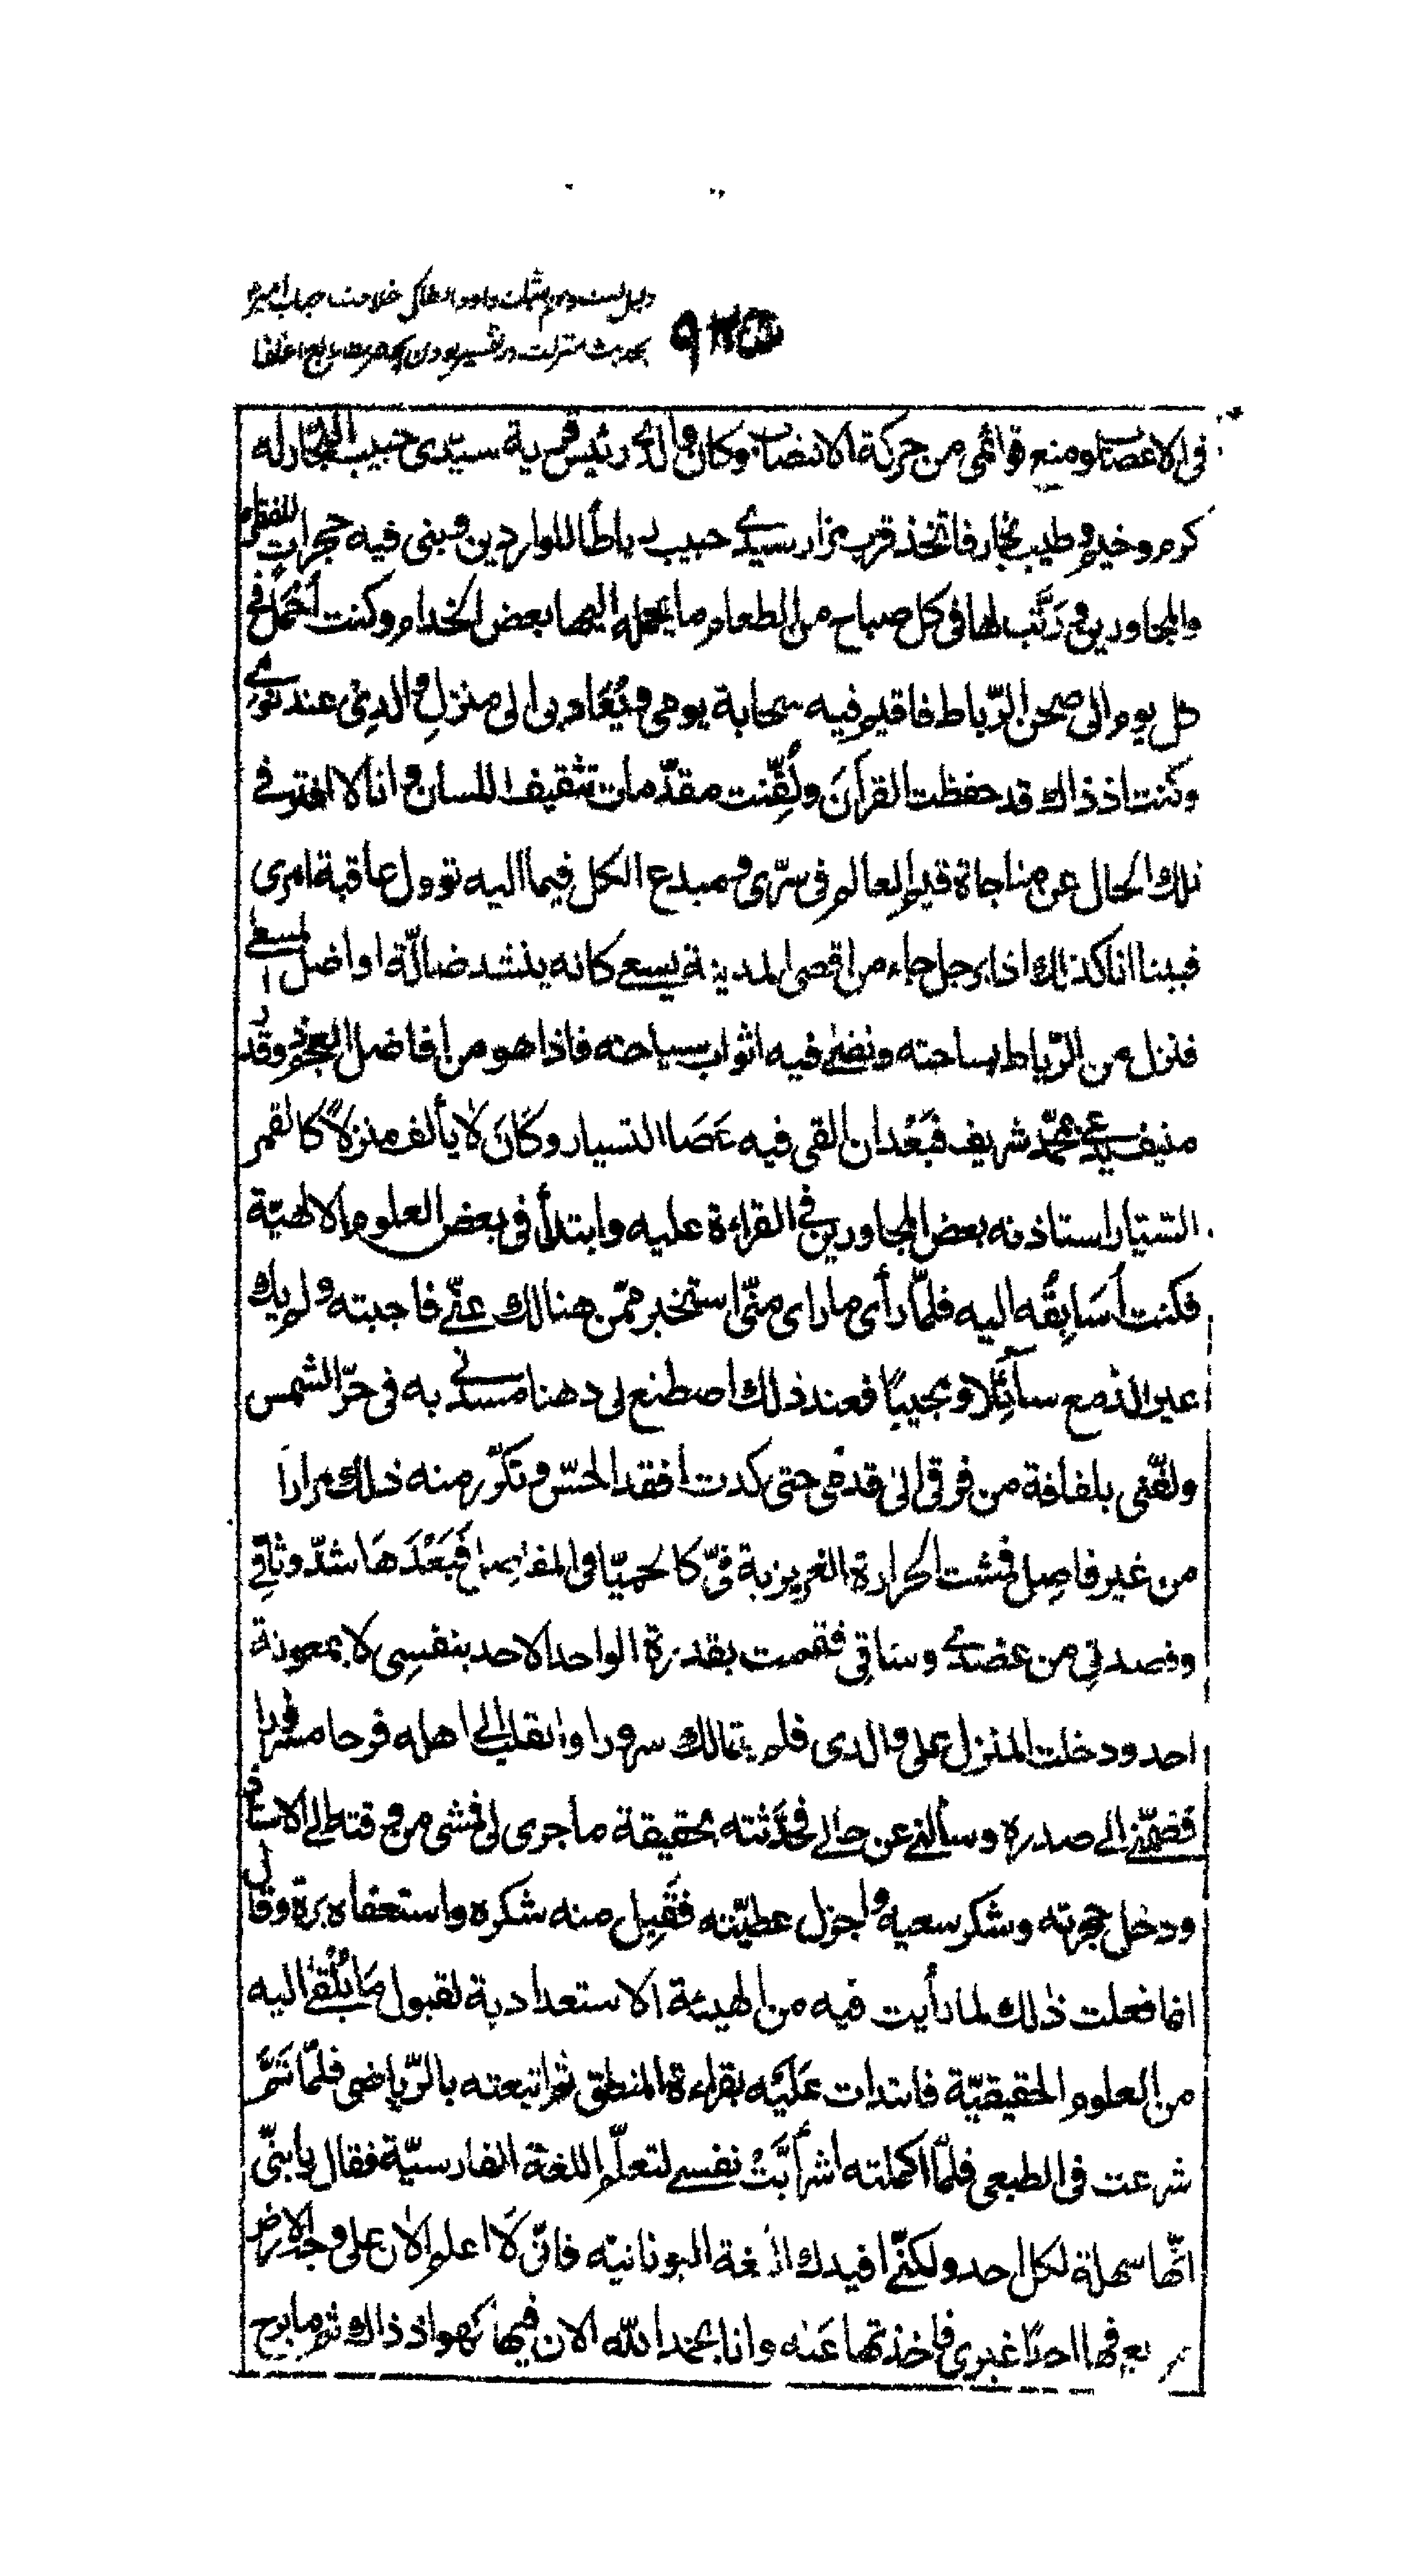 دليل بست و نهم اثبات داود انطاكى خلافت جناب امير
بحديث منزلت در تفسير بودن آنحضرت
٩٢٥
فى الاعصاب و منع قوائمى من حركة الانتصاب و كان والدى رئيس قرية سيّدى حبيب النجار له
كرم و خيم و طيب نجار فاتخذ قرب مزار سيدى حبيب رباطاً للواردين و بنى فيه حجرات للفقراء
و المجاورين و رَتَّب لها فى كل صباح من الطعام ما يحمله اليها بعض الخدام و كنت اُحْمَلُ فى
كل يوم الى صحن الرّباط فاقيم فيه سحابة يومى و يُعَاد بى الى منزل والدى عند نومى
و كنت اذ ذاك قد حفظت القرآنَ و لُقِّنت مقدّمات تثقيف اللسان و انا لا افتر فى
تلك الحال عن مناجاة قيم العالم فى سرّى و مبدع الكل فيما اليه تؤول عاقبة امرى
فبينا انا كذلك اذا برجل جاء من اقصى المدينة يسعى كانه ينشد ضالّة او اضل المسعى
فنزل من الرّباط بساحته و نضى فيه اثواب سياحته فاذا هو من افاضل العجم ذو قدر
منيف يدعى محمّد شريف فبَعْد ان القى فيه عَصَا التسيار و كَانَ لا يألف منزلاً كالقمر
السّيّار استاذنه بعض المجاورين فى القراءة عليه و ابتدأ فى بعض العلوم الالهيّة
فكنت اُسَابِقُه اليه فلمّا رأى ما رأى منّى استخبر ممّن هنالك عنّى فاجبته و لم يك
غير الدّمع سائلا و مجيبًا فعند ذلك اصطنع لى دهنا مسدنى به فى حرّ الشمس
و لفّنى بلفافة من فرقى الى قدمى حتى كدت افقد الحسّ و تكرّر منه ذلك مراراً
من غير فاصل فمشت الحرارة الغريزية فىّ كالحميّا فى المفاصل فَبَعْدَهَا شدّ وثاقى
و فصدنى من عضدى و ساقى فقمت بقدرة الواحد الاحد بنفسى لا بمعونة
احد و دخلت المنزل على والدى فلم يتمالك سرورا و انقلب الى اهله فرحا مسرورا
فضمّنى الى صدره و سألنى عن حالى فحدّثته بحقيقة ما جرى لى فمشى من وقته الى الاستاذ
و دخل حجرته و شكر سعيه و اجزل عطيّته فقَبِل منه شكره و استعفاه برّه و قال
انما فعلت ذلك لما رأيت فيه من الهيئة الاستعدادية لقبول مَا يُلْقى اليه
من العلوم الحقيقيّة فابتدات عَلَيْه بقراءة المنطق ثم اتبعته بالرّياضى فلمّا تَمَّ
شرعت فى الطبعى فلمّا اكملته اشرأَبَّتْ نفسى لتعلّم اللغة الفارسيّة فقال يا بنىّ
انّها سهلة لكل احد و لكنّى افيدك اللغة اليونانيّه فانّى لا اعلم الان على وجه الارض
من يعرفها احدًا غيرى فاخذتها عَنه و انا بحمد الله الان فيها كهو اذ ذاك ثم ما برح